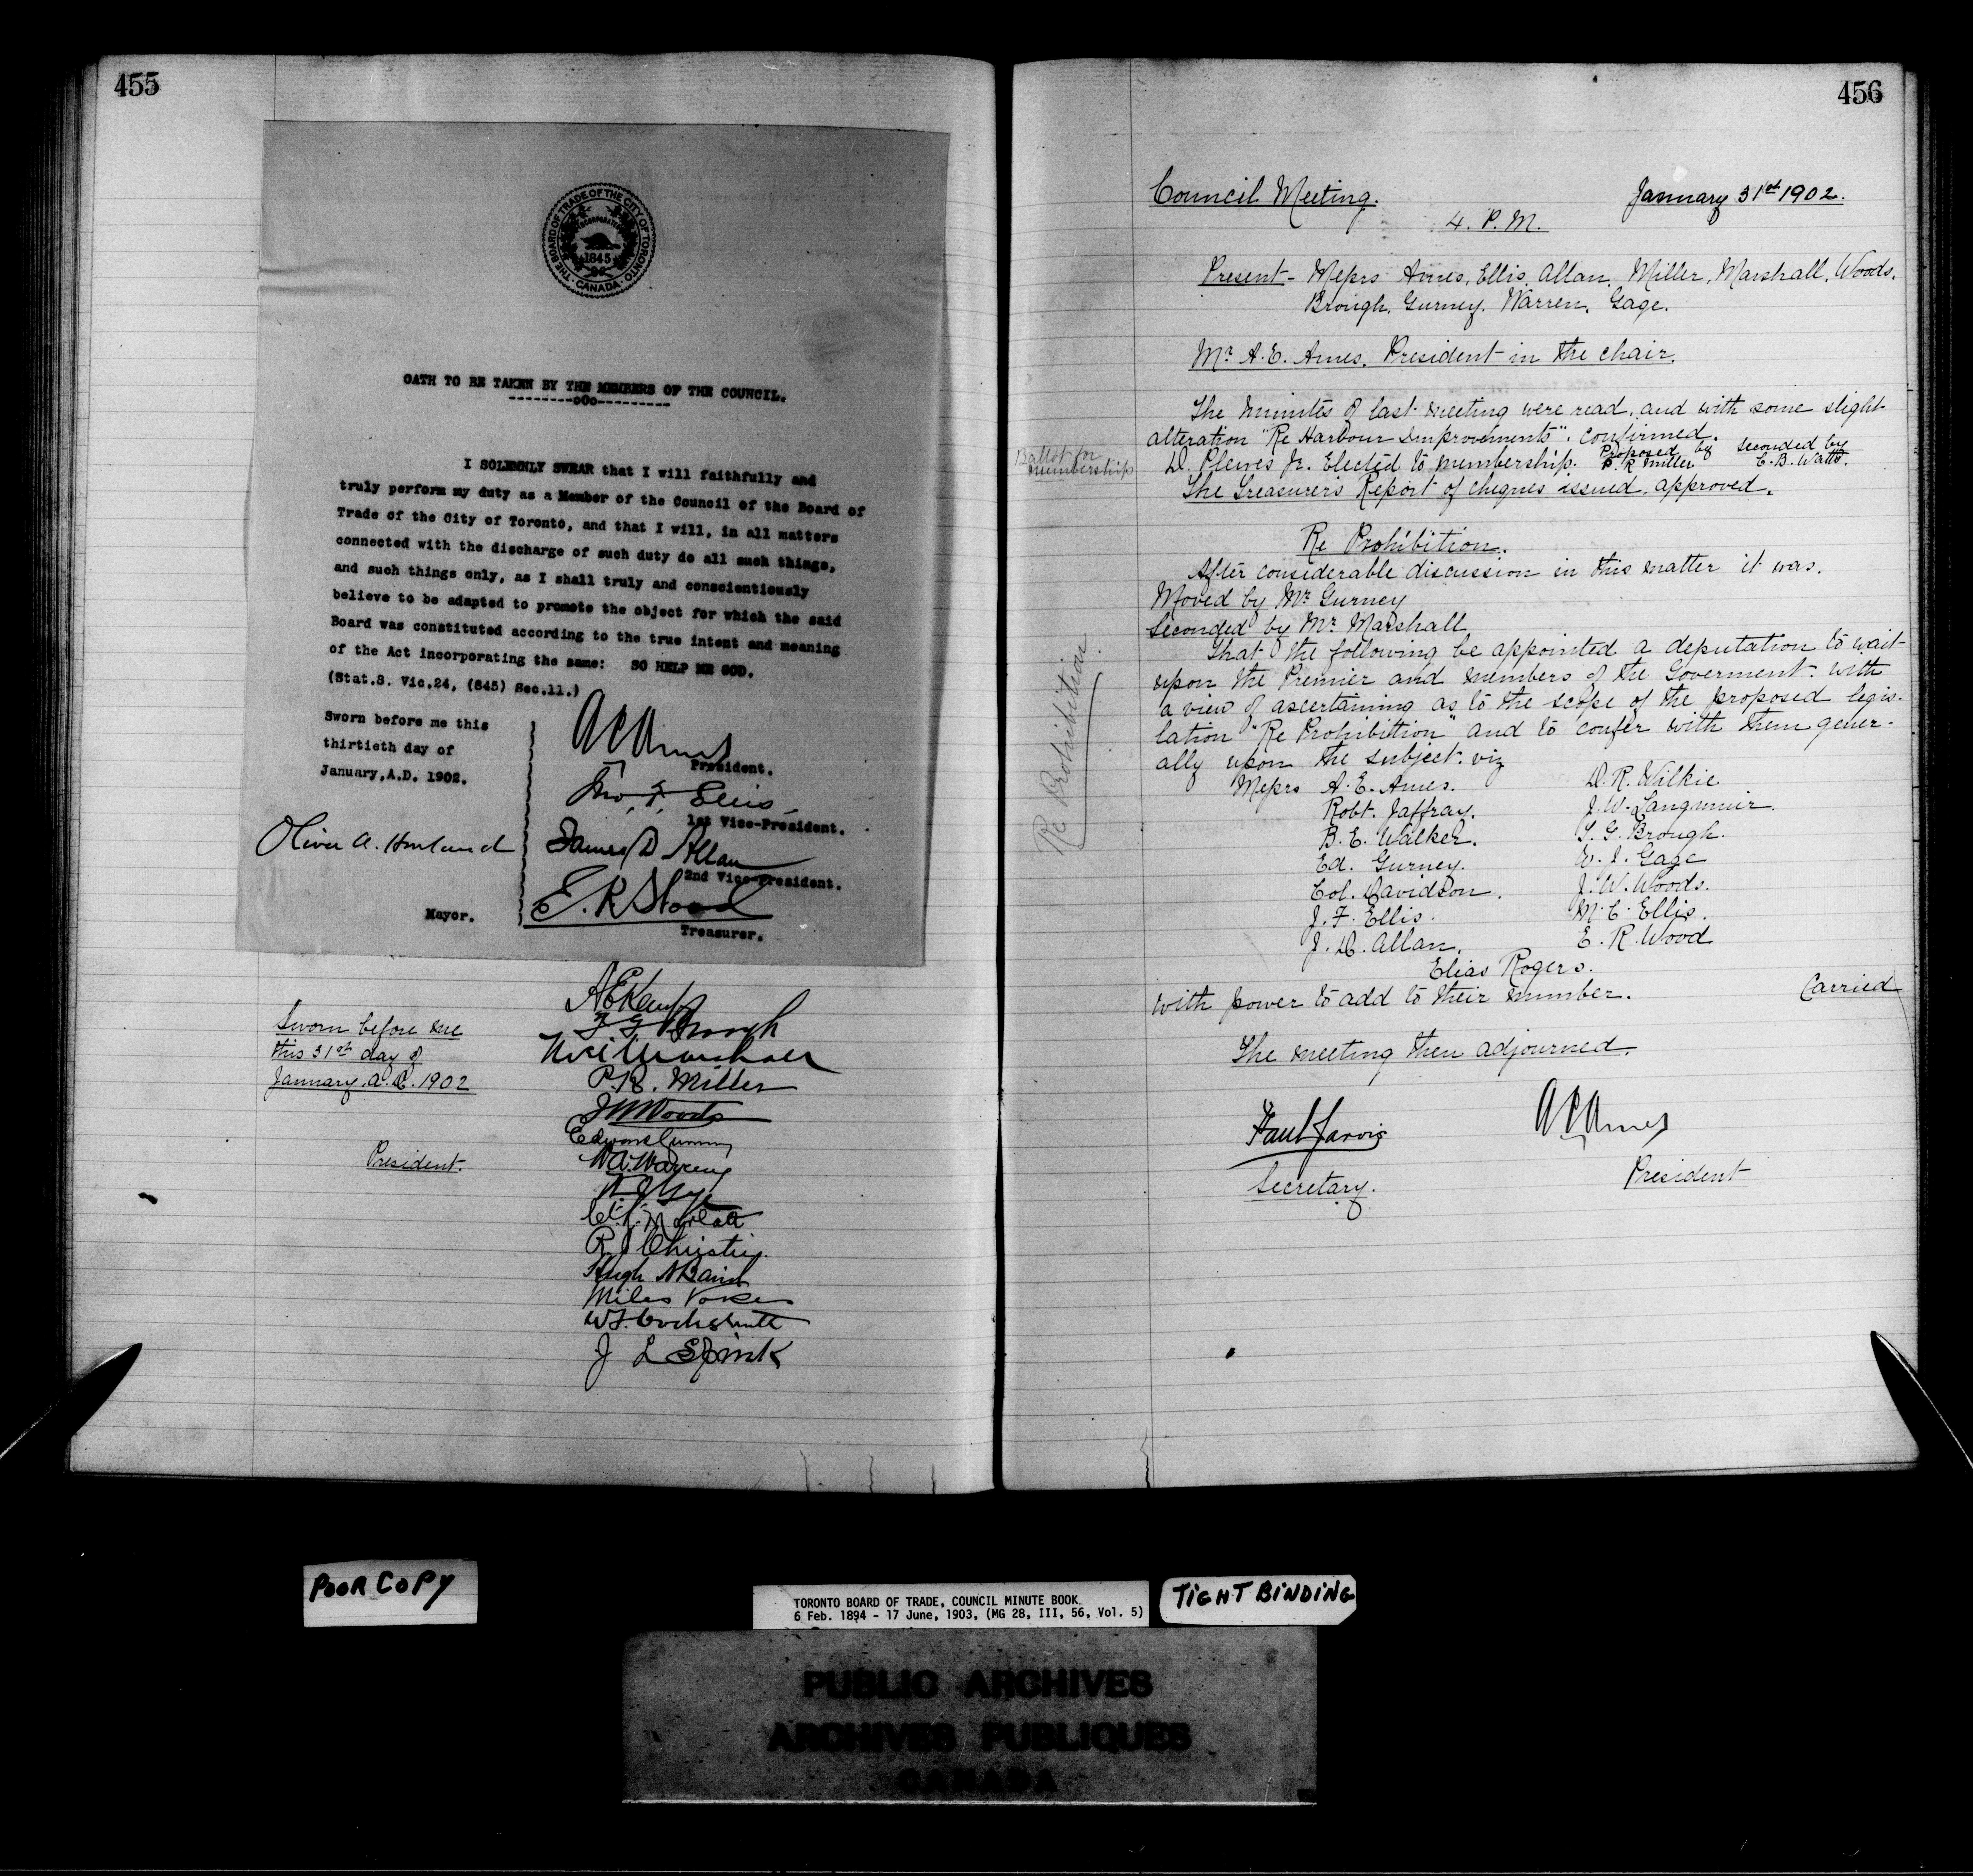 455
THE BOARD OF TRADE OF THE CITY OF TORONTO
INCORPORATED
1845
CANADA
OATH TO BE TAKEN BY THE MEMBERS OF THE COUNCIL.
--------oOo---------
I SOLEMNLY SWEAR that I will faithfully and
truly perform my duty as a Member of the Council of the Board of
Trade of the City of Toronto, and that I will, in all matters
connected with the discharge of such duty do all such things,
and such things only, as I shall truly and conscientiously
believe to be adapted to promote the object for which the said
Board was constituted according to the true intent and meaning
of the Act incorporating the same: SO HELP ME GOD.
(Stat.S. Vic.24, (845) Sec.11.)
Sworn before me this
thirtieth day of
January, A.D. 1902.
A E Ames
President.
Jno. F. Ellis
1st Vice-President.
Oliver A. Howland
James D Allan
2nd Vice-President.
E. R. Wood
Mayor.
Treasurer.
A E Kemp
T. G. Brough
Sworn before me
this 31st day of
January, A.D. 1902
Noel Marshall
P. R. Miller
J W Woods
Edward Gurney
President.
W.A. Warren
W J Gage
R J Christie
Hugh N Baird
Miles Vokes
W.F. Cockshutt
J L Spink
456
Council Meeting. January 31st 1902.
4. P.M.
Present - Messrs Ames, Ellis, Allan, Miller, Marshall, Woods.
Brough, Gurney, Warren, Gage.
Mr A.E. Ames. President in the chair.
The minutes of last meeting were read, and with some slight
alteration "Re Harbour Improvements", confirmed.
Ballot for membership
D. Plewes Jr. Elected to membership. Proposed by P. R Miller Seconded by E. B. Watts.
The Treasurers Report of cheques issued, approved.
Re Prohibition.
After considerable discussion in this matter it was.
Moved by Mr Gurney
Seconded by Mr Marshall
Re Prohibition.
That the following be appointed a deputation to wait
upon the Premier and members of the Goverment. with
a view of ascertaining as to the scope of the proposed legis-
lation "Re Prohibition" and to confer with them gener-
ally upon the subject. viz
Messrs A. E. Ames. D. R. Wilkie
Robt. Jaffray. J. W. Langmuir.
B. E. Walker. T. G. Brough.
Ed. Gurney. W. J. Gage
Col. Davidson. J. W. Woods.
J. F. Ellis. M. C. Ellis.
J. D. Allan. E. R. Wood
Elias Rogers.
with power to add to their number. Carried
The meeting then adjourned.
Paul Jarvis A E Ames
Secretary. President
POOR COPY
TORONTO BOARD OF TRADE, COUNCIL MINUTE BOOK
6 Feb. 1894 - 17 June, 1903, (MG 28, III, 56, Vol. 5)
TIGHT BINDING
PUBLIC ARCHIVES
ARCHIVES PUBLIQUES
CANADA